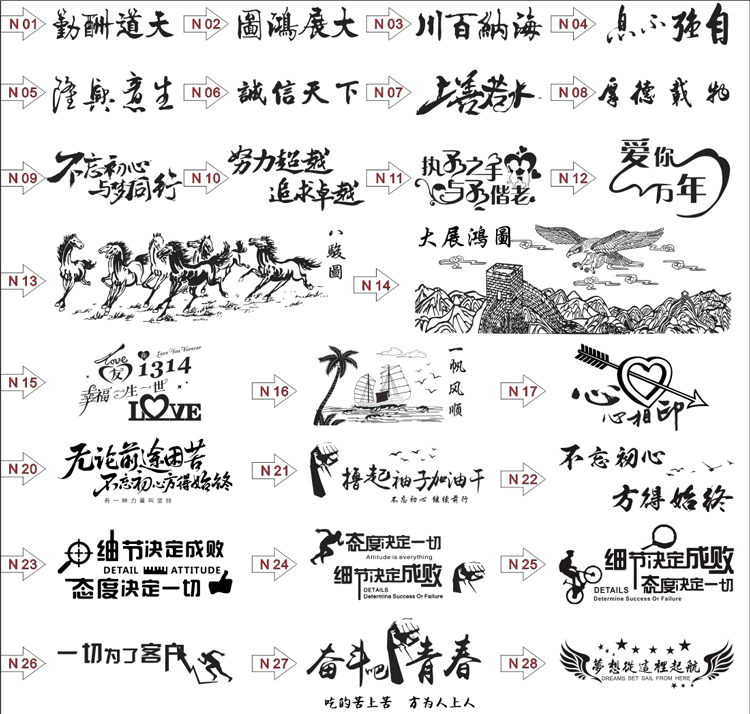 N 01
天道酬勤
N 02
大展鴻圖
N 03
海納百川
N 04
自强不息
N 05
生意興隆
N 06
誠信天下
N 07
上善若水
N 08
厚德載物
N 09
不忘初心
与梦同行
N 10
努力超越
追求卓越
N 11
执子之手
与子偕老
N 12
爱你
万年
N 13
八駿圖
N 14
大展鴻圖
N 15
Love
Love You Forever
1314
幸福一生一世
LOVE
N 16
一帆风顺
N 17
心心相印
N 20
无论前途困苦
不忘初心方得始终
有一种力量叫坚持
N 21
撸起袖子加油干
不忘初心 继续前行
N 22
不忘初心
方得始终
N 23
细节决定成败
DETAIL ATTITUDE
态度决定一切
N 24
态度决定一切
Attitude is everything
细节决定成败
DETAILS
Determine Success Or Failure
N 25
细节决定成败
DETAILS 态度决定一切
Determine Success Or Failure
N 26
一切为了客户
N 27
奋斗吧青春
吃的苦上苦 方为人上人
N 28
夢想從這裡起航
DREAMS SET SAIL FROM HERE